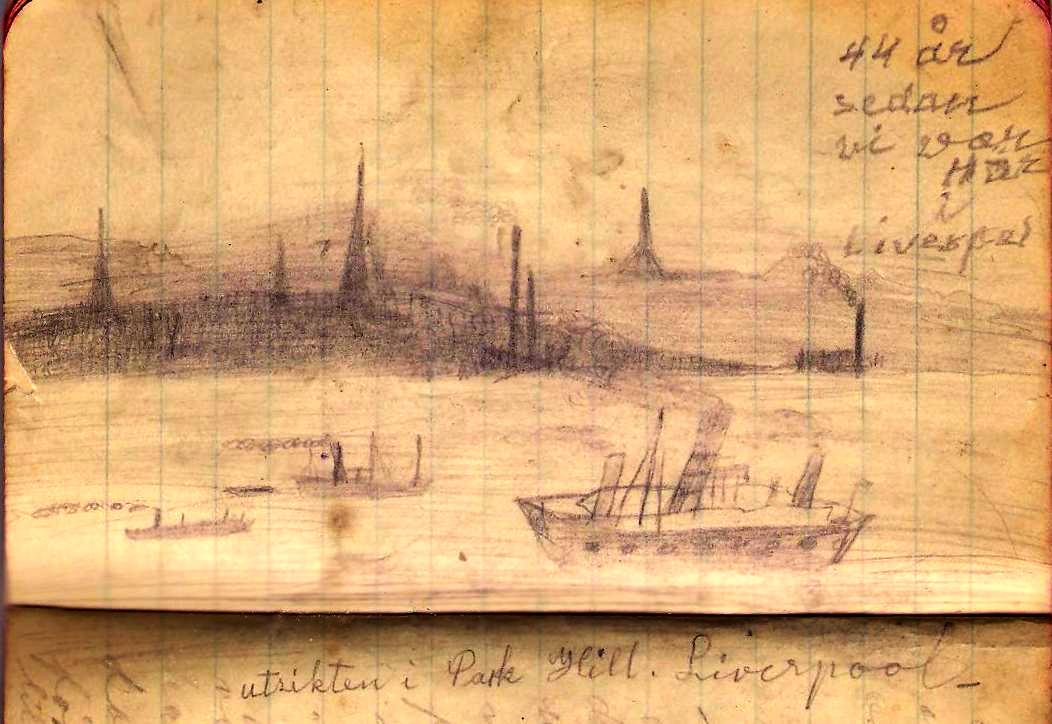 44 år
sedan
vi var
Här
i
Liverpol
utsikten i Park Hill. Liverpool